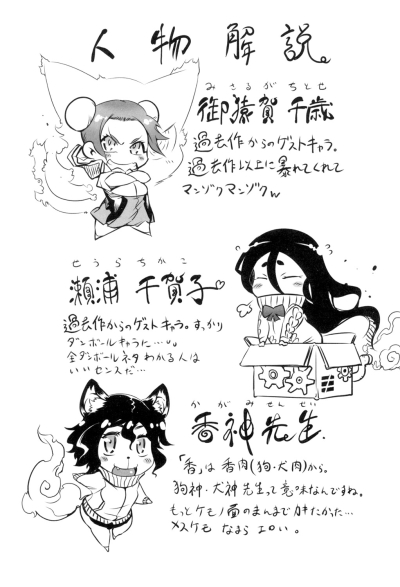 人物解説。
みさるがちとせ
御猿賀 千歳
過去作からのゲストキャラ。
過去作以上に暴れてくれて
マンゾクマンゾクw
せうらちかこ
瀬浦 千賀子♡
過去作からのゲストキャラ。すっかり
ダンボールキャラに…
全ダンボールネタわかる人は
いいセンスだ…
かがみせんせい
香神先生.
「香」は香肉(狗・犬肉)から。
狗神・犬神先生って意味なんですね。
もっとケモノ面のまんまで描きたかった…
メスケモ なまら エロい。